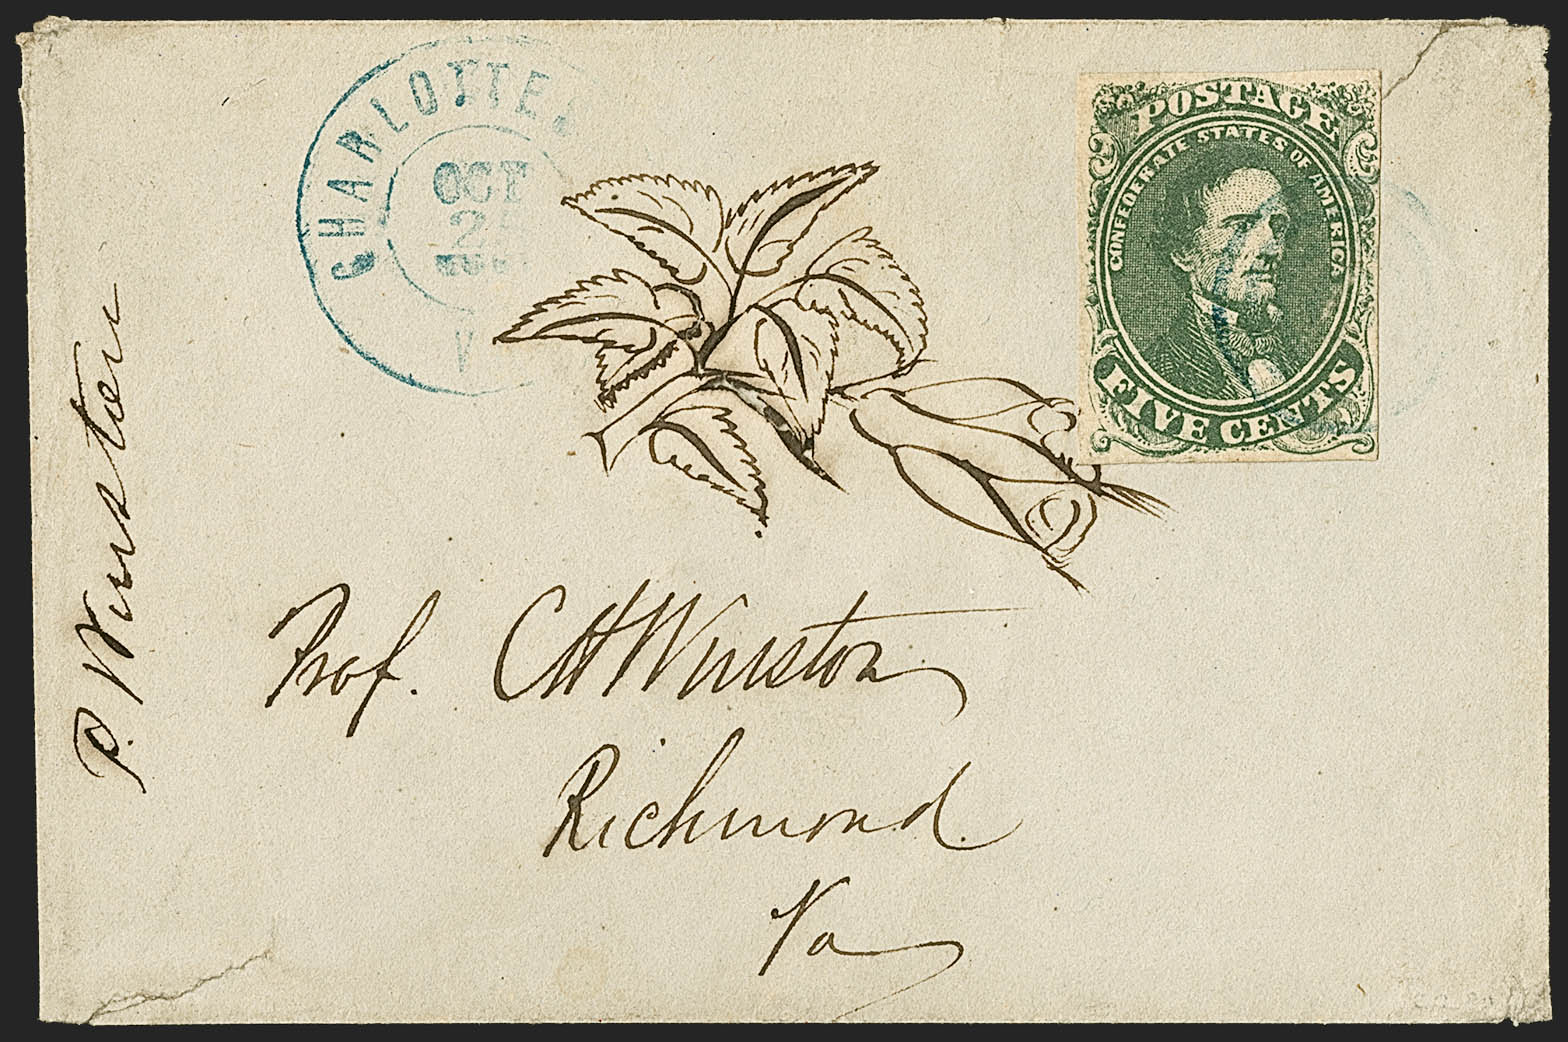 CHARLOTTES
OCT
V
POSTAGE
CONFEDERATE STATES OF AMERICA
FIVE CENTS
P. Winston
Prof. CH Winston
Richmond.
Va